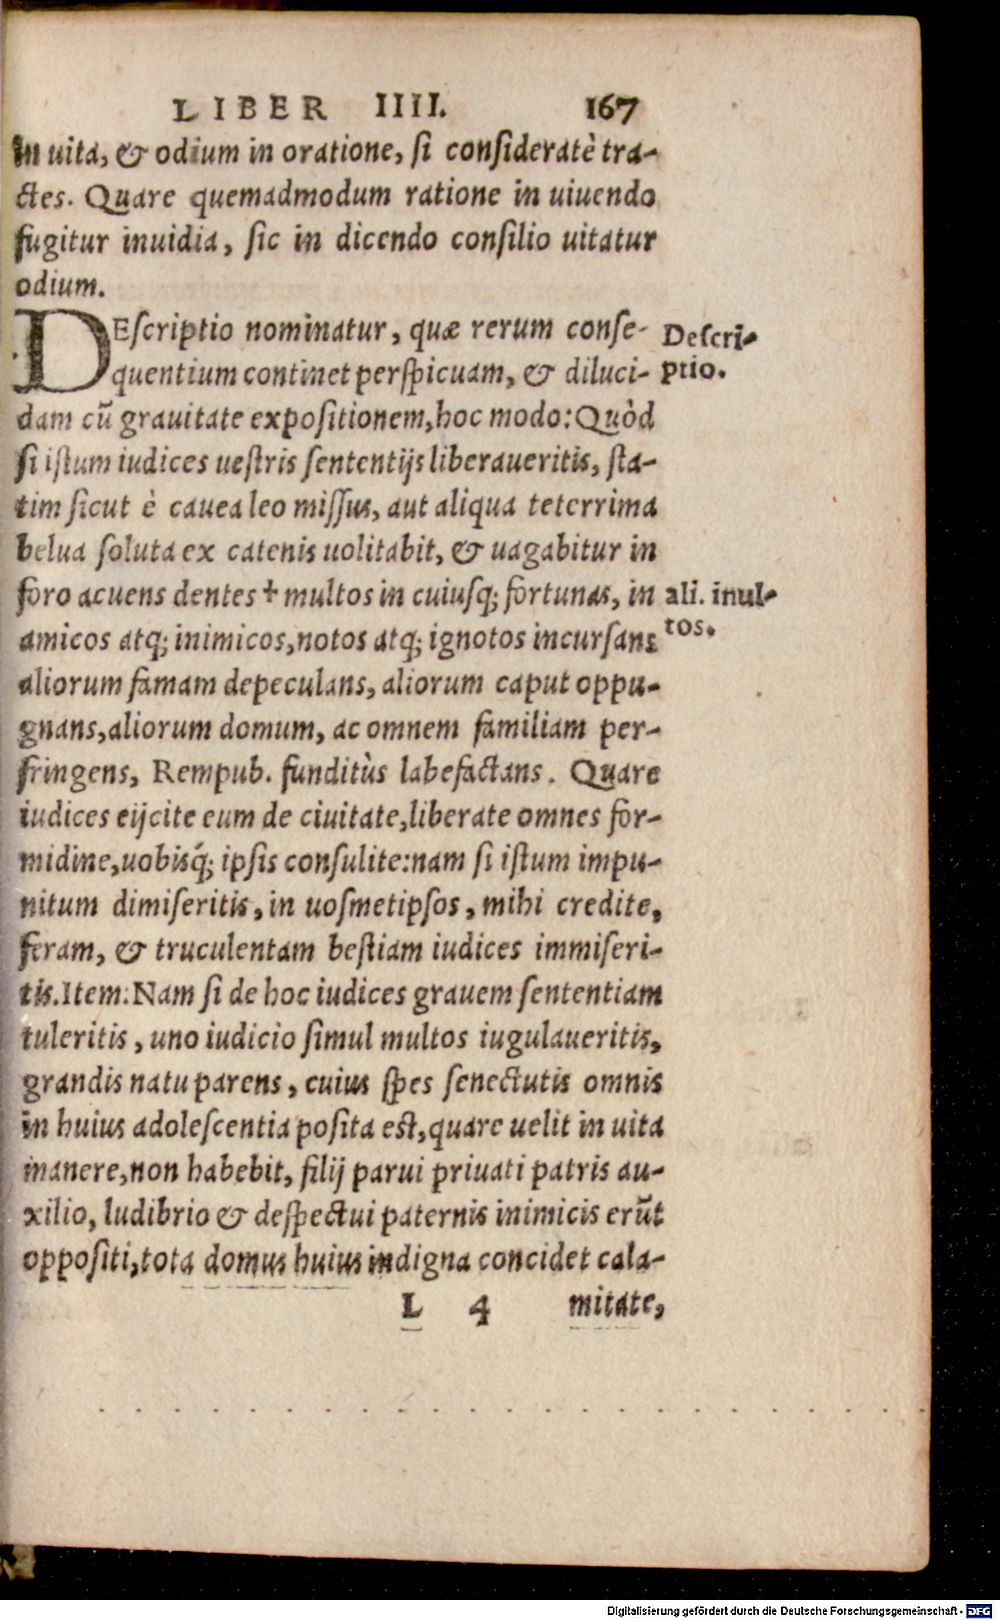 LIBER IIII. 167
in uita, & odium in oratione, si consideratè tra-
ctes. Quare quemadmodum ratione in uiuendo
fugitur inuidia, sic in dicendo consilio uitatur
odium.
DEscriptio nominatur, quæ rerum conse-
quentium continet perspicuam, & diluci-
Descri-
ptio.
dam cū grauitate expositionem, hoc modo: Quòd
si istum iudices uestris sententijs liberaueritis, sta-
tim sicut è cauea leo missus, aut aliqua teterrima
belua soluta ex catenis uolitabit, & uagabitur in
foro acuens dentes + multos in cuiusq; fortunas, in
ali. inul-
tos.
amicos atq; inimicos, notos atq; ignotos incursans
aliorum famam depeculans, aliorum caput oppu-
gnans, aliorum domum, ac omnem familiam per-
fringens, Rempub. funditùs labefactans. Quare
iudices eijcite eum de ciuitate, liberate omnes for-
midine, uobisq́; ipsis consulite: nam si istum impu-
nitum dimiseritis, in uosmetipsos, mihi credite,
feram, & truculentam bestiam iudices immiseri-
tis. Item: Nam si de hoc iudices grauem sententiam
tuleritis, uno iudicio simul multos iugulaueritis,
grandis natu parens, cuius spes senectutis omnis
in huius adolescentia posita est, quare uelit in uita
manere, non habebit, filij parui priuati patris au-
xilio, ludibrio & despectui paternis inimicis erūt
oppositi, tota domus huius indigna concidet cala-
L 4 mitate,
Digitalisierung gefördert durch die Deutsche Forschungsgemeinschaft - DFG